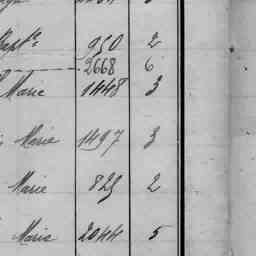 Bapt.te 950 2
2668 6
Marie 1448 3
Marie 1497 3
Marie 825 2
Marie 2044 5